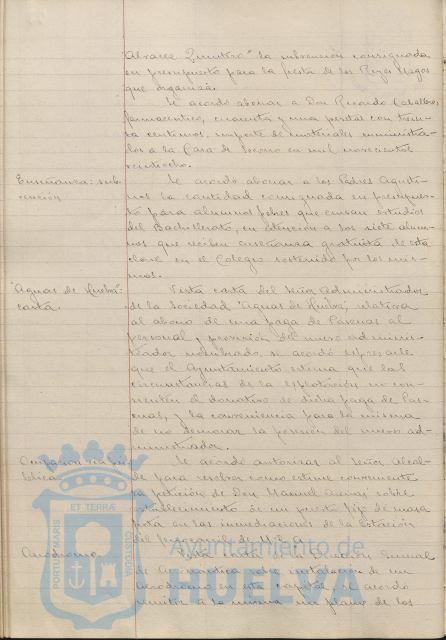 Alvarez Quintero" la subvención consignada
en presupuesto para la fiesta de los Reyes Magos
que organiza.
Se acordó abonar a Don Ricardo Caballero,
farmacéutico, cuarenta y una pesetas con trein-
ta céntimos, importe de materiales suministra-
dos a la Casa de Socorro en mil novecientos
veintiocho.
Enseñanza: sub-
vención.
Se acordó abonar a los Padres Agusti-
nos la cantidad consignada en presupues-
to para alumnos pobres que cursan estudios
del Bachillerato, en atención a los siete alum-
nos que reciben enseñanza gratuita de esta
clase en el Colegio sostenido por los mis-
mos.
"Aguas de Huelva":
carta.
Vista carta del Señor Administrador
de la Sociedad "Aguas de Huelva", relativa
al abono de una paga de Pascuas al
personal y posesión del nuevo admi-
nistrador nombrado, se acordó expresarle
que el Ayuntamiento estima que las
circunstancias de la explotación no con-
sienten el donativo de dicha paga de Pas-
cuas, y la conveniencia para la misma
de no demorar la posesión del nuevo ad-
ministrador.
Ocupación vía pú-
blica
Se acordó autorizar al Señor Alcal-
de para resolver como estime conveniente
la petición de Don Manuel sobre
establecimiento de un puesto fijo de masa
frita en las inmediaciones de la Estación
del ferrocarril de M.Z.A.
Aerodromo
Dirección General
de Aeronáutica sobre instalación de un
aerodromo en esta capital, se acordó
remitir a la misma un plano de los
PORTUS MARIS
ET TERRAE
CUSTODIA
Ayuntamiento de
HUELVA